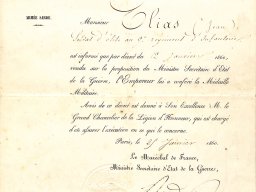 ARMÉE SARDE.
Monsieur Elias (Jean)
Soldat d'élite au 2e régiment d'Infanterie,
est informé que par décret du 2 Janvier 1860,
rendu sur la proposition du Ministre Secrétaire d'Etat
de la Guerre, l'Empereur lui a conféré la Médaille
Militaire.
Avis de ce décret est donné à Son Excellence M. le
Grand Chancelier de la Légion d'Honneur, qui est chargé
d'en assurer l'exécution en ce qui le concerne.
Paris, le 25 Janvier 1860.
Le Maréchal de France,
Ministre Secrétaire d'Etat de la Guerre,